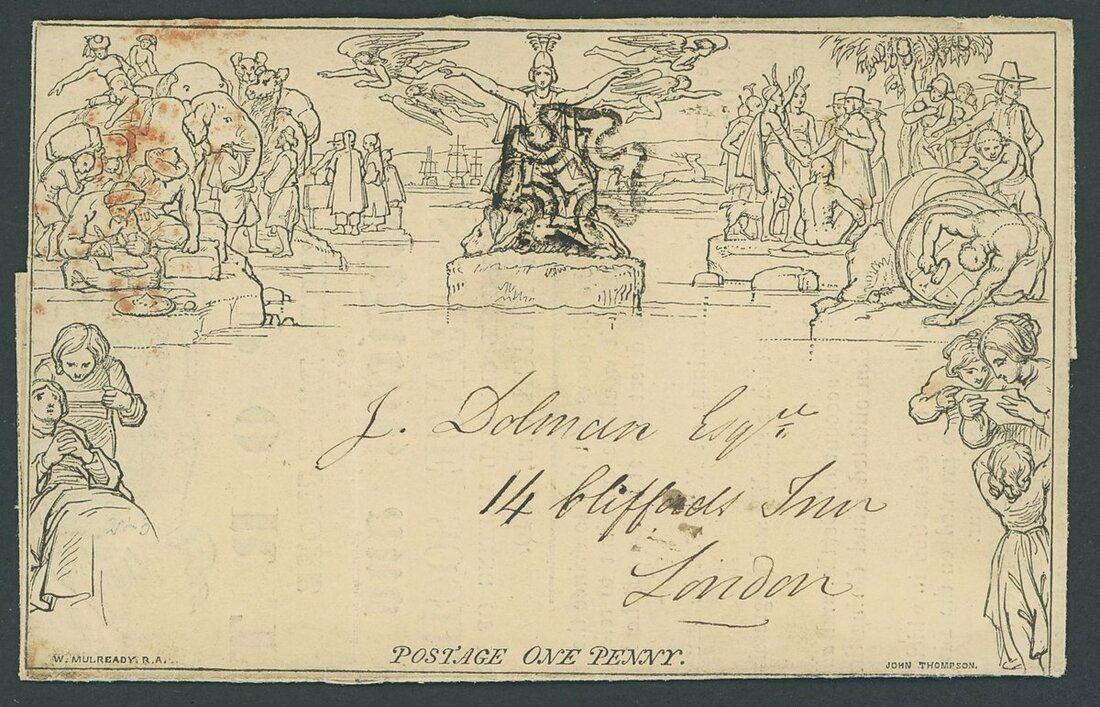 J. Dolman Esqr.
14 Cliffords Inn
London
POSTAGE ONE PENNY.
W. MULREADY. R.A.
JOHN THOMPSON.